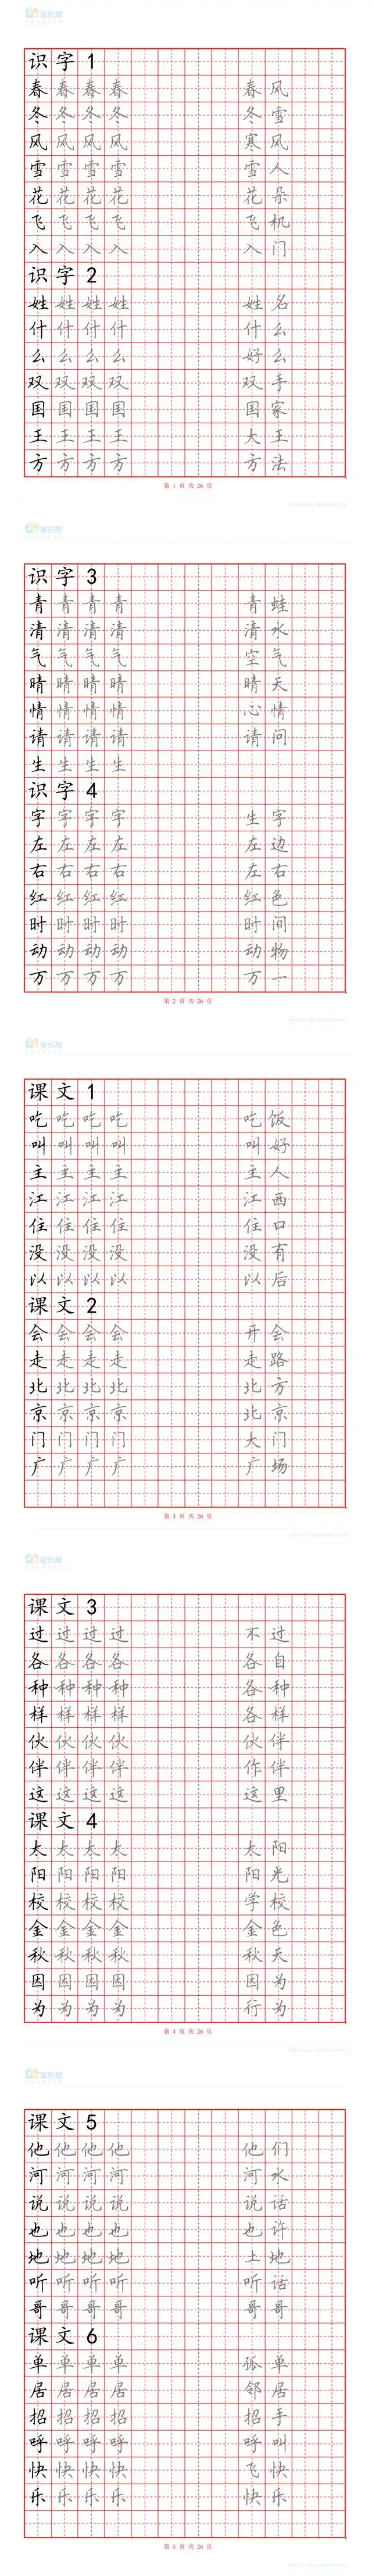 家长帮
识字1
春春春春 春风
冬冬冬冬 冬雪
风风风风 寒风
雪雪雪雪 雪人
花花花花 花朵
飞飞飞飞 飞机
入入入入 入门
识字2
姓姓姓姓 姓名
什什什什 什么
么么么么 好么
双双双双 双手
国国国国 国家
王王王王 大王
方方方方 方法
第 1 页 共 26 页
家长帮
识字3
青青青青 青蛙
清清清清 清水
气气气气 空气
晴晴晴晴 晴天
情情情情 心情
请请请请 请问
生生生生
识字4
字字字字 生字
左左左左 左边
右右右右 左右
红红红红 红色
时时时时 时间
动动动动 动物
万万万万 万一
第 2 页 共 26 页
家长帮
课文1
吃吃吃吃 吃饭
叫叫叫叫 叫好
主主主主 主人
江江江江 江西
住住住住 住口
没没没没 没有
以以以以 以后
课文2
会会会会 开会
走走走走 走路
北北北北 北方
京京京京 北京
门门门门 大门
广广广广 广场
第 3 页 共 26 页
家长帮
课文3
过过过过 不过
各各各各 各自
种种种种 各种
样样样样 各样
伙伙伙伙 伙伴
伴伴伴伴 作伴
这这这这 这里
课文4
太太太太 太阳
阳阳阳阳 阳光
校校校校 学校
金金金金 金色
秋秋秋秋 秋天
因因因因 因为
为为为为 行为
第 4 页 共 26 页
家长帮
课文5
他他他他 他们
河河河河 河水
说说说说 说话
也也也也 也许
地地地地 土地
听听听听 听话
哥哥哥哥 哥哥
课文6
单单单单 孤单
居居居居 邻居
招招招招 招手
呼呼呼呼 呼叫
快快快快 飞快
乐乐乐乐 快乐
第 5 页 共 26 页